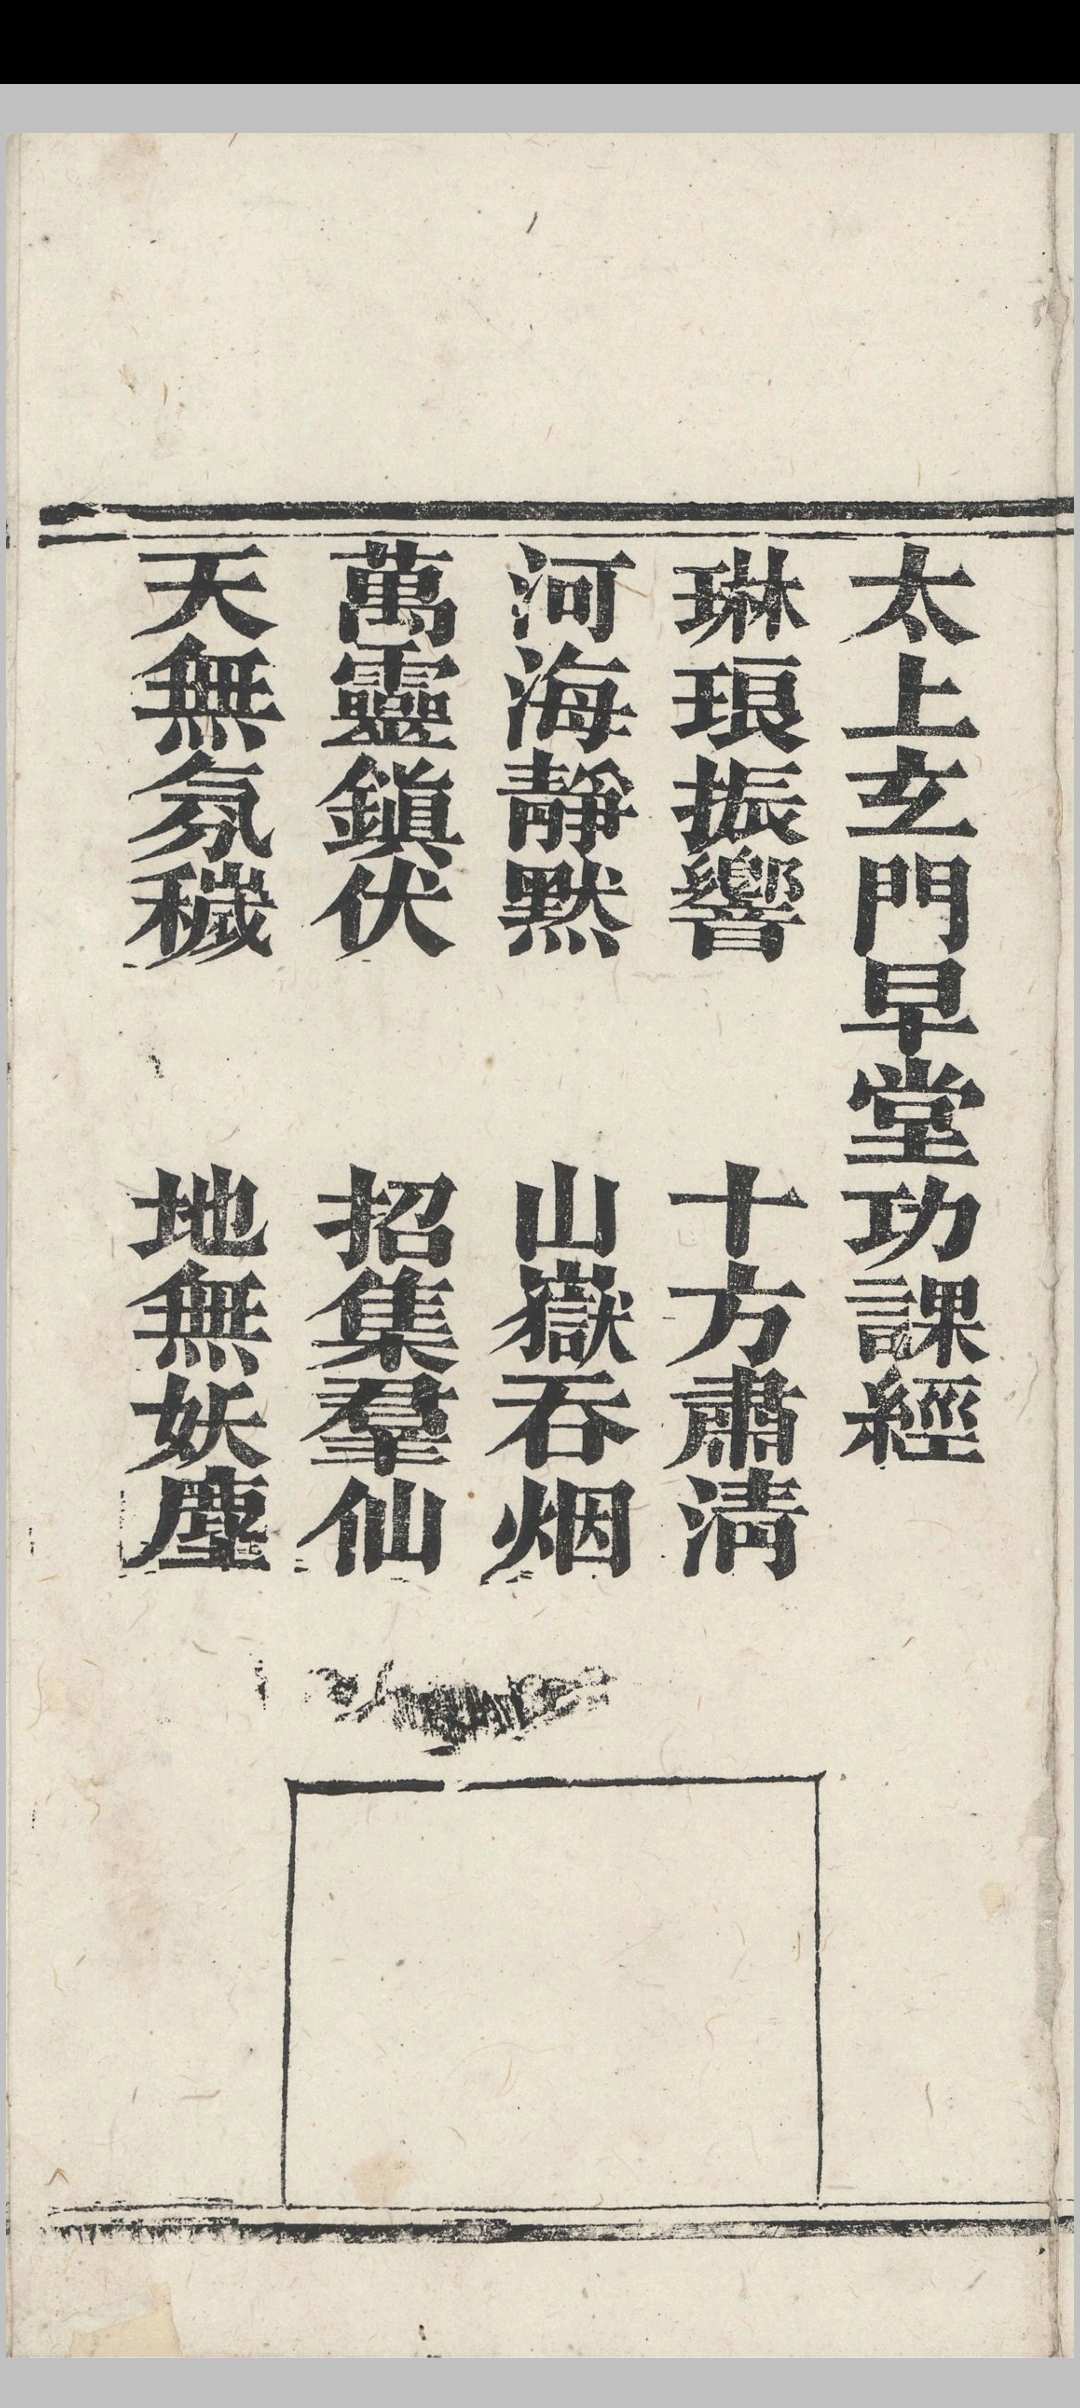 太上玄門早堂功課經
琳琅振響　十方肅清
河海靜默　山嶽吞烟
萬靈鎮伏　招集羣仙
天無氛穢　地無妖塵